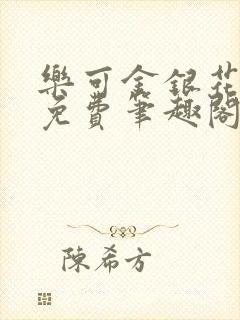 樂可金銀花
免費筆趣閣
陳希方